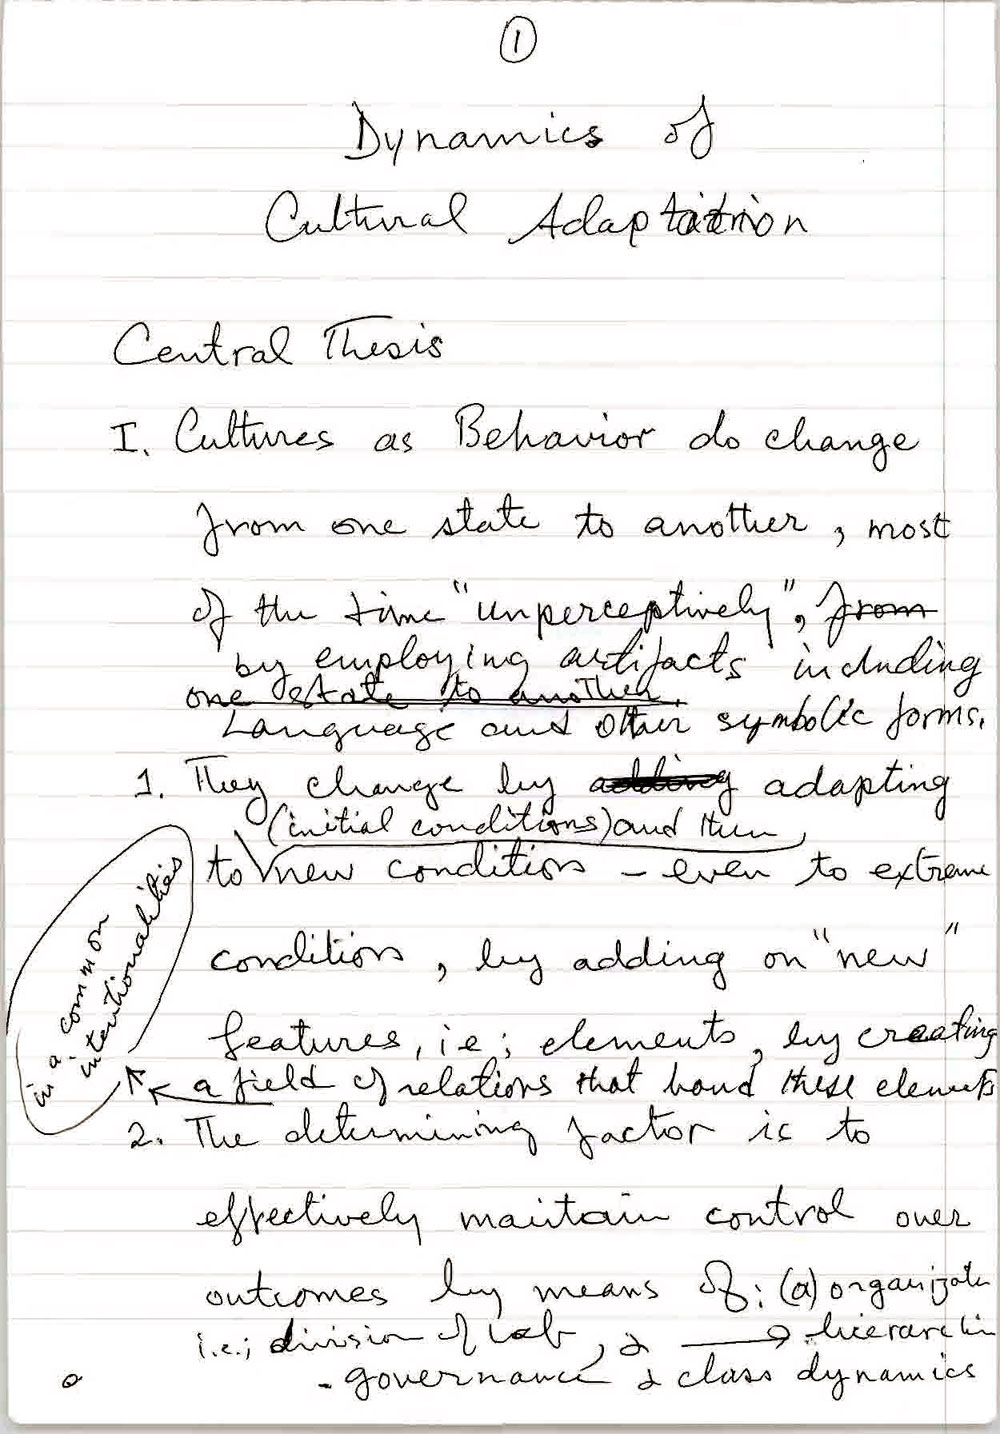 1
Dynamics of
Cultural Adaptation
Central Thesis
I. Cultures as Behavior do change
from one state to another, most
of the time "unperceptively", from
by employing artifacts including
one state to another.
Language and other symbolic forms.
1. They change by adding adapting
(initial conditions) and then
to new conditions - even to extreme
conditions, by adding on "new"
features, i.e; elements, by creating
a field of relations that bond these elements
in a common
intentionalities
2. The determining factor is to
effectively maintain control over
outcomes by means of: (a)
i.e.; division of lab, &
- governance & class dynamics